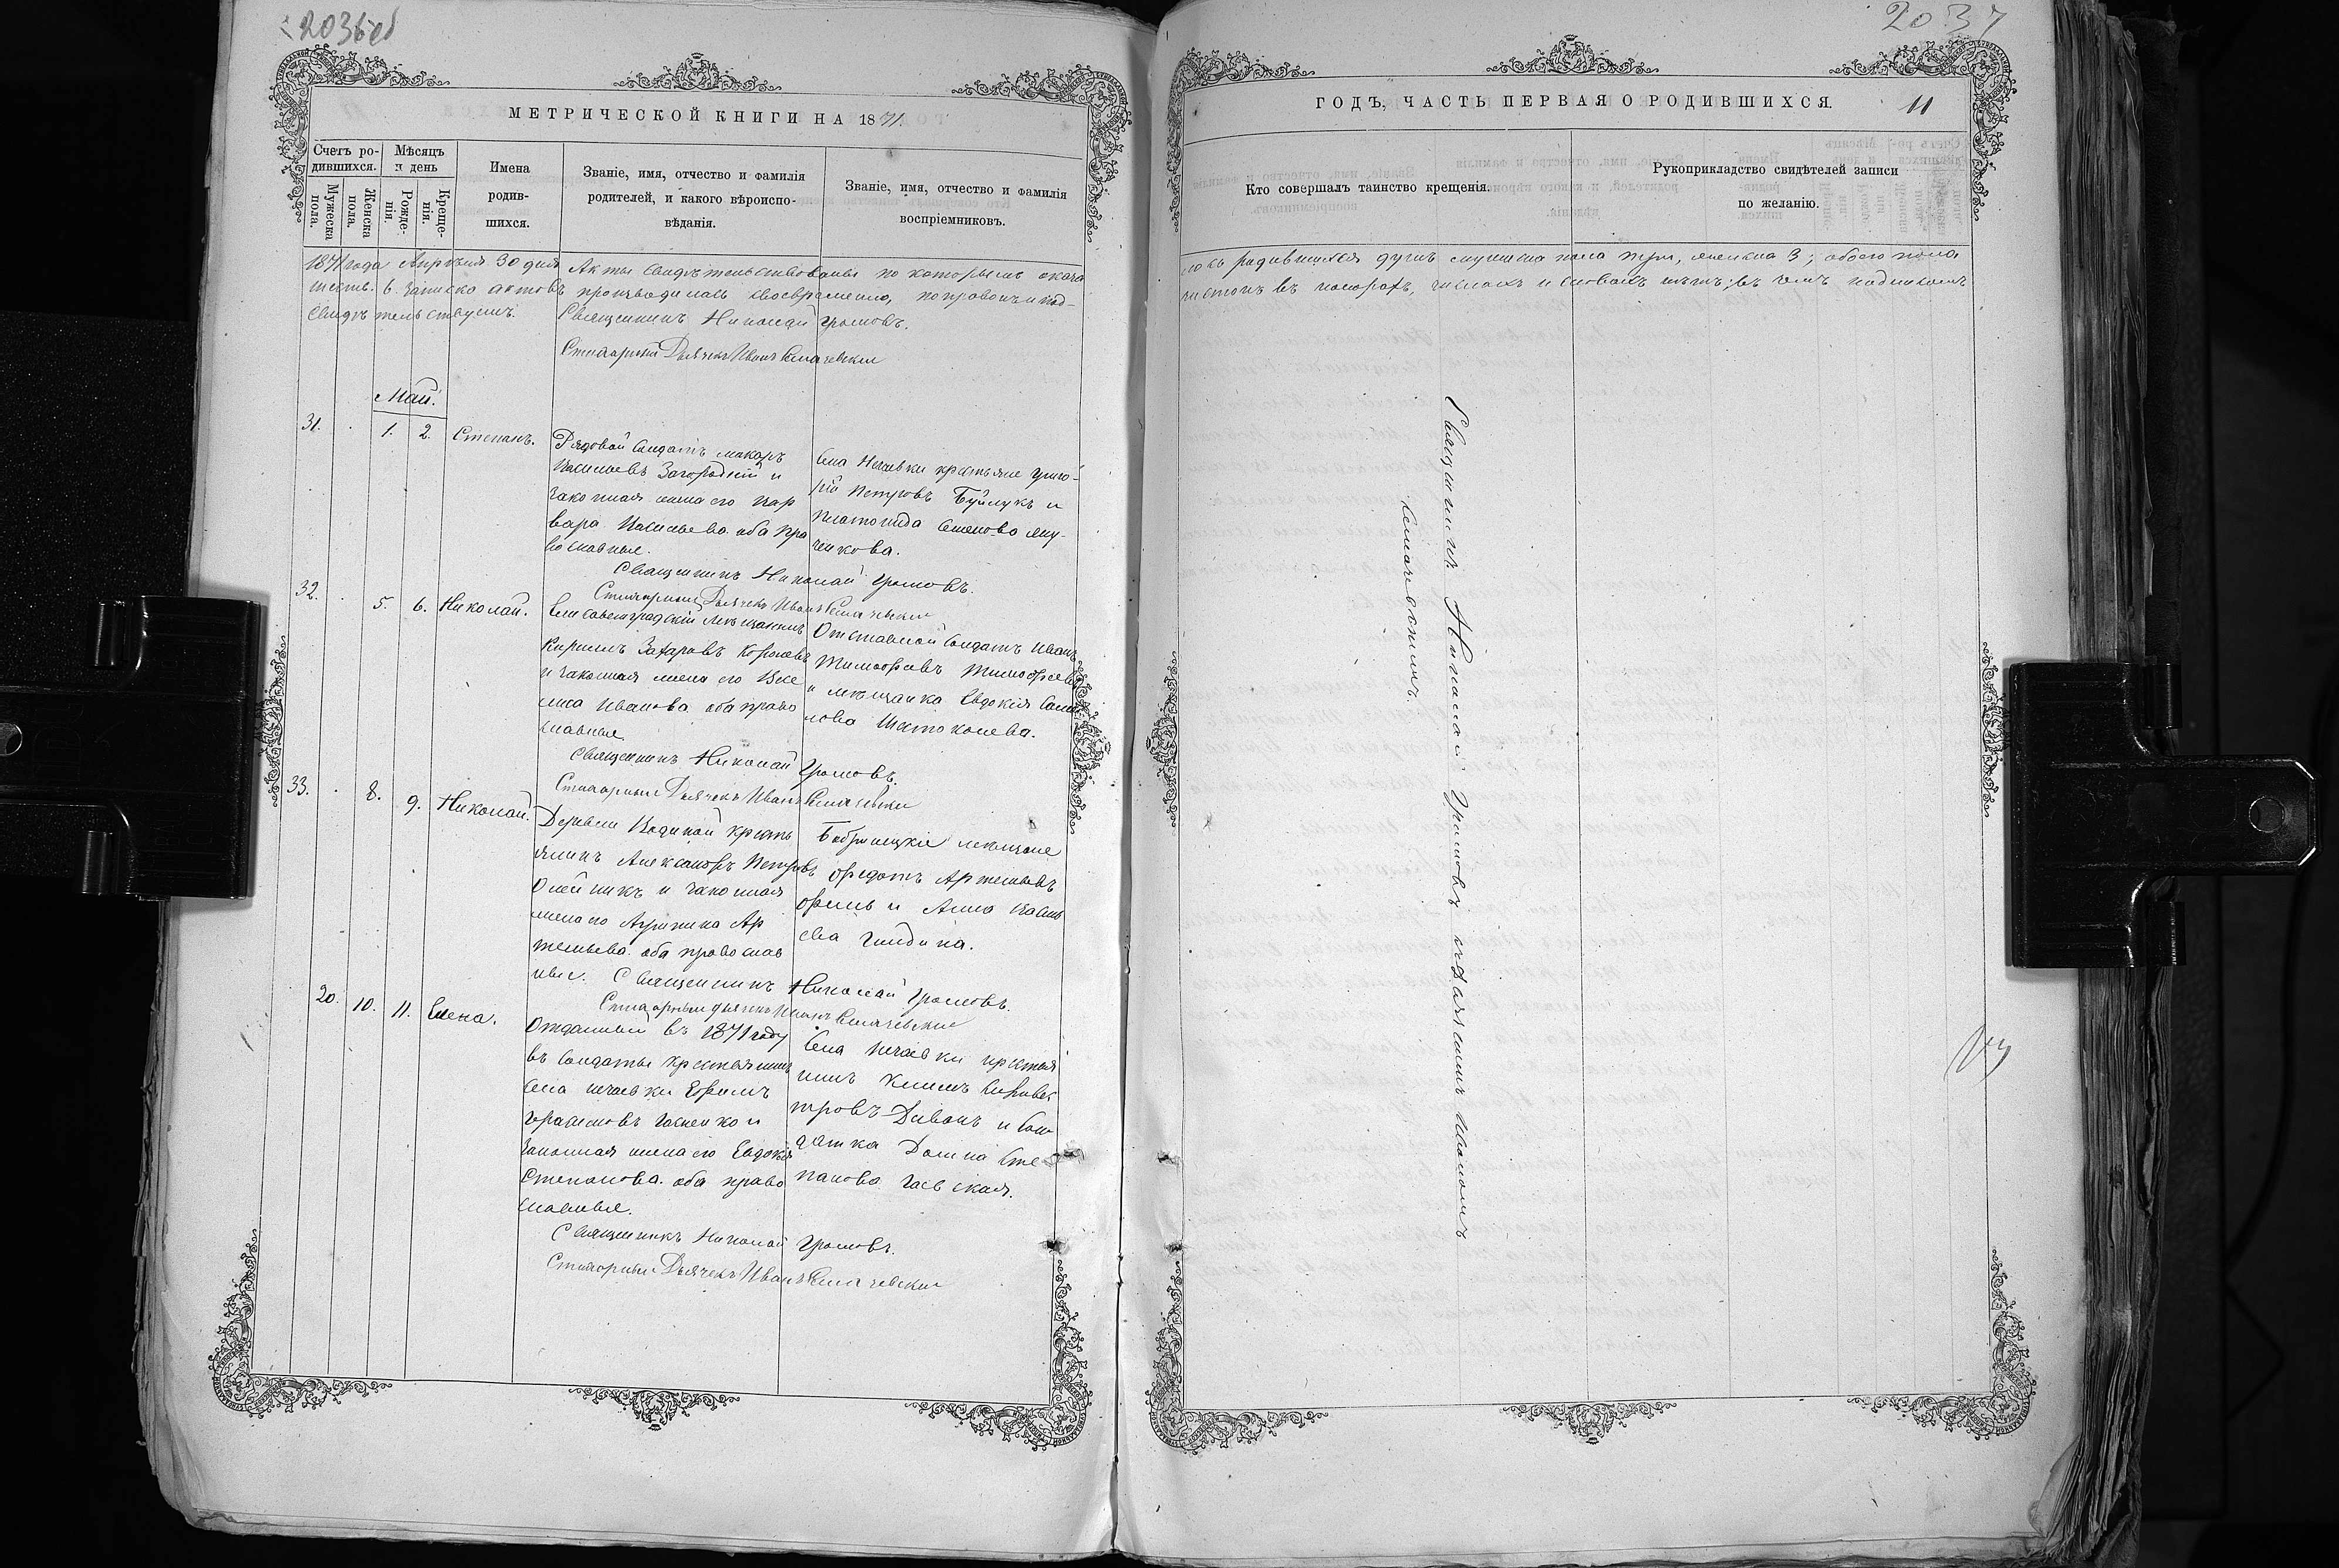 2036об
МЕТРИЧЕСКОЙ КНИГИ НА 1871.
Счетъ родившихся.
Мужеска пола.
Женска пола.
Мѣсяцъ и день
Рожденія.
Крещенія.
Имена родившихся.
Званіе, имя, отчество и фамилія родителей, и какого вѣроисповѣданія.
Званіе, имя, отчество и фамилія воспріемниковъ.
1871 года Апрѣля 30 дня Акты свидѣтельствованы по которымъ оказа
шесть. 6. Записка актовъ производилась своевременно, поправокъ и под-
свидѣтельствуемъ. Священникъ Николай Громовъ.
Стихарный Дьячекъ Иванъ
Май.
31. 1. 2. Степанъ.
Рядовой Солдатъ Макаръ
Васильевъ Загородній и
законная жена его Вар
вара Васильева оба пра
вославные.
Села Нечаевки крестьяне Григо-
рій Петровъ Буйлукъ и
Платонида Семенова
Священникъ Николай Громовъ.
Стихарный Дьячекъ Иванъ
32. 5. 6. Николай.
Елисаветградскій мѣщанинъ
Кириллъ Захаровъ Королевъ
и законная жена его Васе
лиса Иванова оба право
славные
Отставной Солдатъ Иванъ
Тимофеевъ Тимофеевъ
и мѣщанка Евдокія
Шестоколева.
Священникъ Николай Громовъ.
Стихарный Дьячекъ Иванъ
33. 8. 9. Николай.
Деревни Водяной кресть
янинъ Александръ Петровъ
Олейникъ и законная
жена его Агрипина Ар
темьева оба православ
ные.
Бобринецкіе мѣщане
Федотъ Артемьевъ
и Анна
Священникъ Николай Громовъ.
Стихарный Дьячекъ Иванъ
20. 10. 11. Елена.
Отданный въ 1871 году
въ солдаты крестьянинъ
села Нечаевки Ефимъ
Герасимовъ Гаененко и
законная жена его Евдокія
Степанова оба право
славные.
Села Нечаевки крестья
нинъ Климъ Сильвес
тровъ Диванъ и сол
датка Домна Сте
панова Гаевская.
Священникъ Николай Громовъ.
Стихарный Дьячекъ Иванъ
2037
ГОДЪ, ЧАСТЬ ПЕРВАЯ О РОДИВШИХСЯ.
11
Кто совершалъ таинство крещенія.
Рукоприкладство свидѣтелей записи по желанію.
лось родившихся душъ мужеска пола три, женска 3; обоего пола
чистокъ въ номерахъ, числахъ и словахъ нѣтъ; въ чемъ подписомъ
Священникъ Николай Громовъ съ дьячкомъ Иваномъ